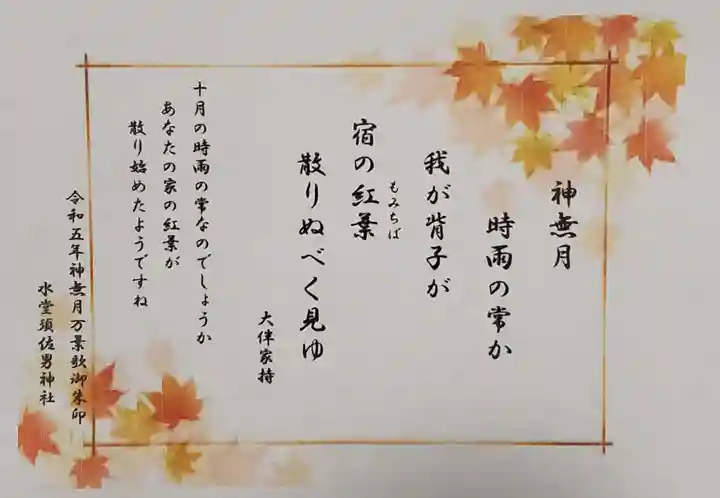 神無月
時雨の常か
我が背子が
宿の紅葉
もみちば
散りぬべく見ゆ
大伴家持
十月の時雨の常なのでしょうか
あなたの家の紅葉が
散り始めたようですね
令和五年神無月万葉歌御朱印
水堂須佐男神社